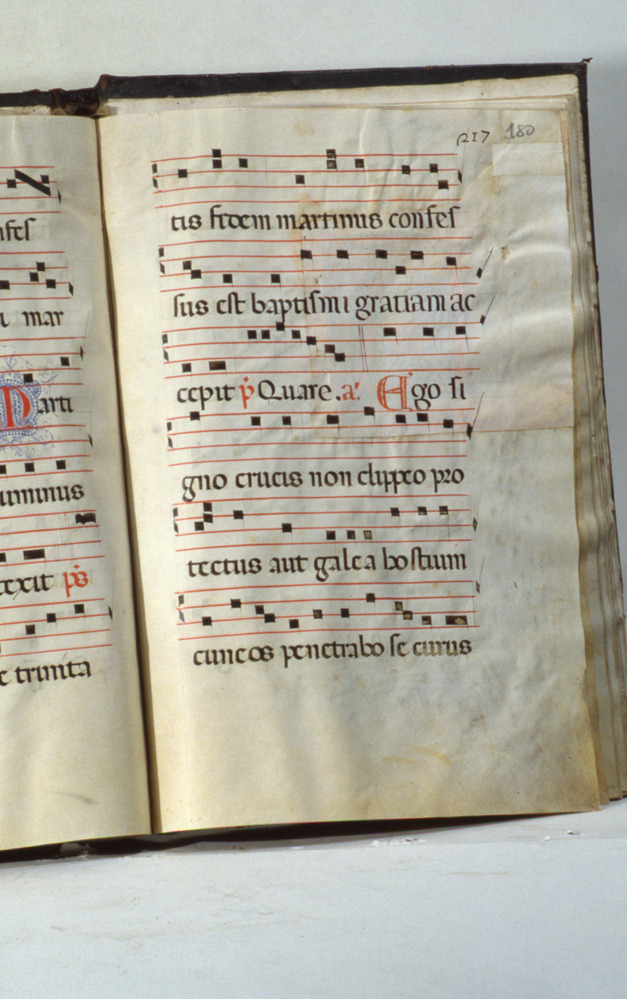 217 180
tis fidem martinus confes
sus est baptismi gratiam ac
cepit p̄ Quare .a. Ego si
gno crucis non clippeo pro
tectus aut galea hostium
cuneos penetrabo securus
nfes
mar
Marti
uminus
texit ps̄
e trinta